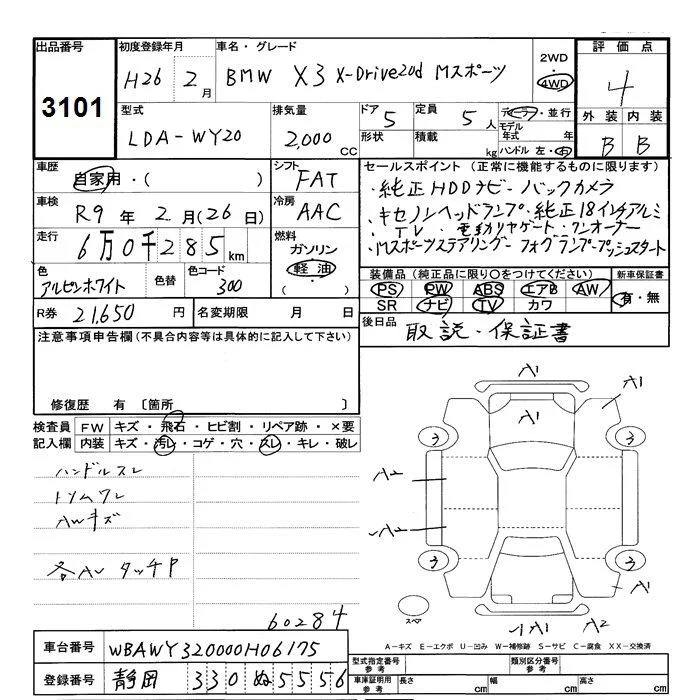 出品番号 初度登録年月 車名・グレード 2WD 4WD 評価点
3101 H26 2月 BMW X3 X-Drive20d Mスポーツ 4
型式 排気量 ドア 定員 ディーラー・並行 外装 内装
LDA-WY20 2,000 CC 5 5人 モデル年式 年 B B
形状 積載 kg ハンドル 左・右
車歴 自家用・( ) シフト FAT セールスポイント (正常に機能するものに限ります)
車検 R9年 2月(26日) 冷房 AAC ・純正HDDナビ・バックカメラ
・キセノンヘッドランプ・純正18インチアルミ
走行 6万0千285km 燃料 ガソリン 軽油 ( ) ・TV・電動リヤゲート・ワンオーナー
・Mスポーツステアリング・フォグランプ・プッシュスタート
色 アルピンホワイト 色替 色コード 300
装備品 (純正品に限り○をつけてください) 新車保証書
PS PW ABS エアB AW 有・無
SR ナビ TV カワ
R券 21,650円 名変期限 月 日
後日品 取説・保証書
注意事項申告欄 (不具合内容等は具体的に記入して下さい)
修復歴 有 〔箇所 〕
検査員 FW キズ・飛石・ヒビ割・リペア跡・×要
記入欄 内装 キズ・汚レ・コゲ・穴・スレ・キレ・破レ
ハンドルスレ
トリムワレ
AWキズ
各AU タッチP
60284
A1
A1
A1
3 3
A2
A2
3 3
A1
スペア
A1 A2
A-キズ E-エクボ U-凹み W-補修跡 S-サビ C-腐食 XX-交換済
車台番号 WBAWY320000H06175
登録番号 静岡 330 ぬ 5556
型式指定番号 参考 類別区分番号 参考
車庫証明用 参考 長さ cm 幅 cm 高さ cm